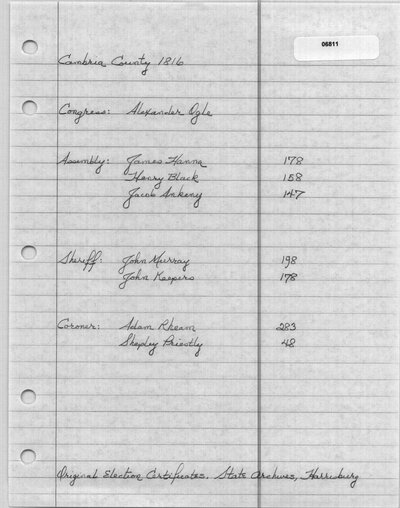 06811
Cambria County 1816
Congress: Alexander Ogle
Assembly: James Hanna 178
Henry Black 158
Jacob Ankeny 147
Sheriff: John Murray 198
John Keepers 178
Coroner: Adam Rheam 283
Shepley Priestly 48
Original Election Certificates. State Archives, Harrisburg